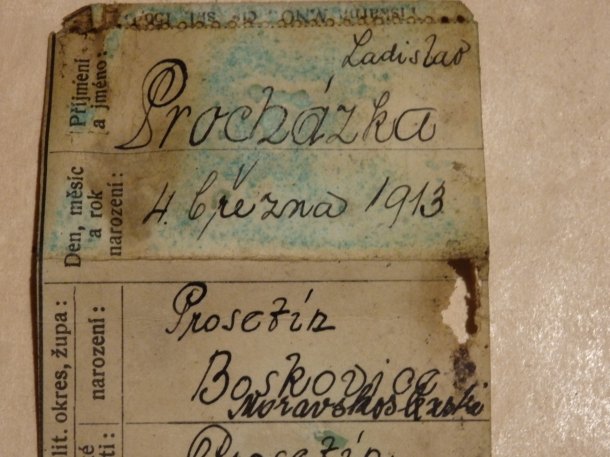 Příjmení
a jméno:
Ladislav
Procházka
Den, měsíc
a rok
narození:
4. března 1913
lit. okres, župa:
narození:
Prosetín
Boskovice
Moravskoslezská
é
ti:
Prosetín